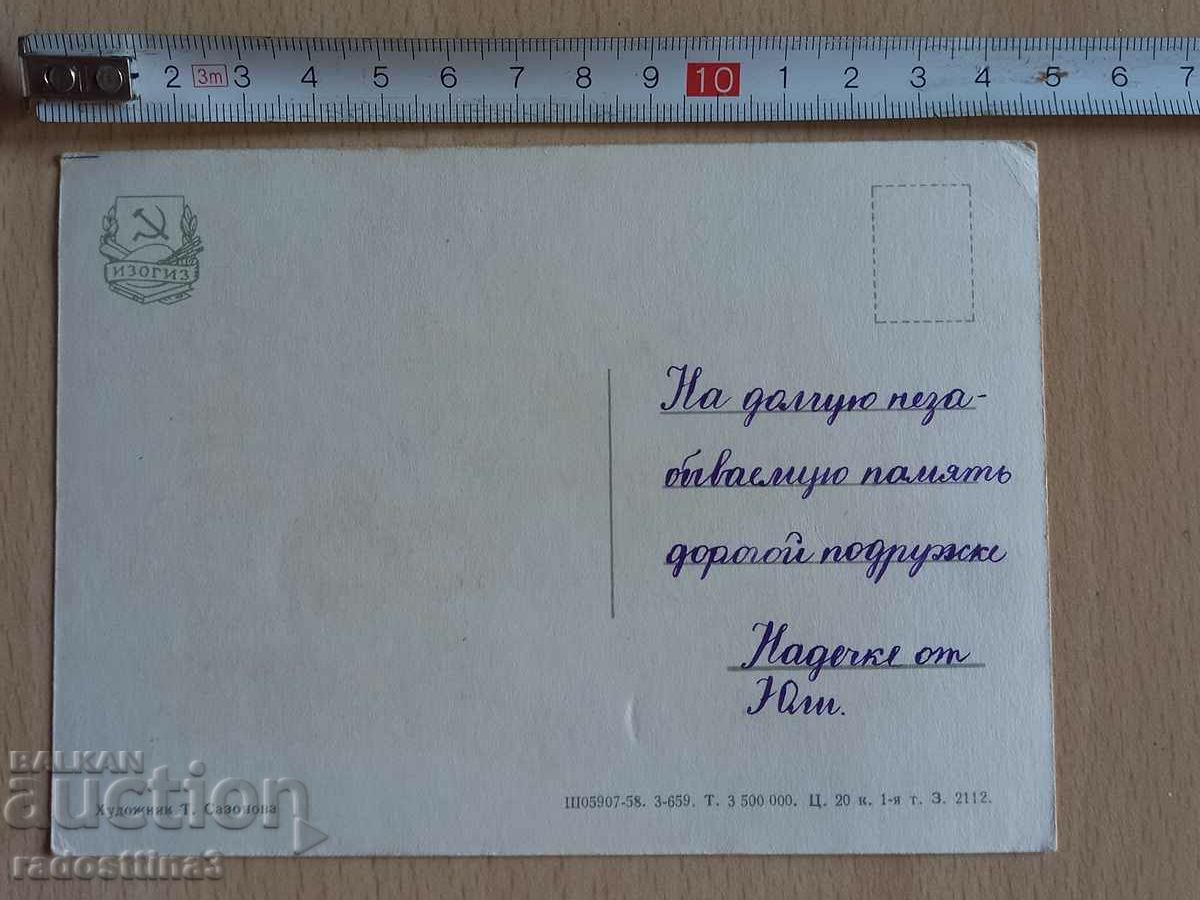 2 3m 3 4 5 6 7 8 9 10 1 2 3 4 5 6 7
ИЗОГИЗ
На долгую неза-
бываемую память
дорогой подружке
Надечке от
Юли.
Художник Т. Сазонова
Ш05907-58. 3-659. Т. 3 500 000. Ц. 20 к. 1-я т. З. 2112.
BALKAN
auction
radosttina3